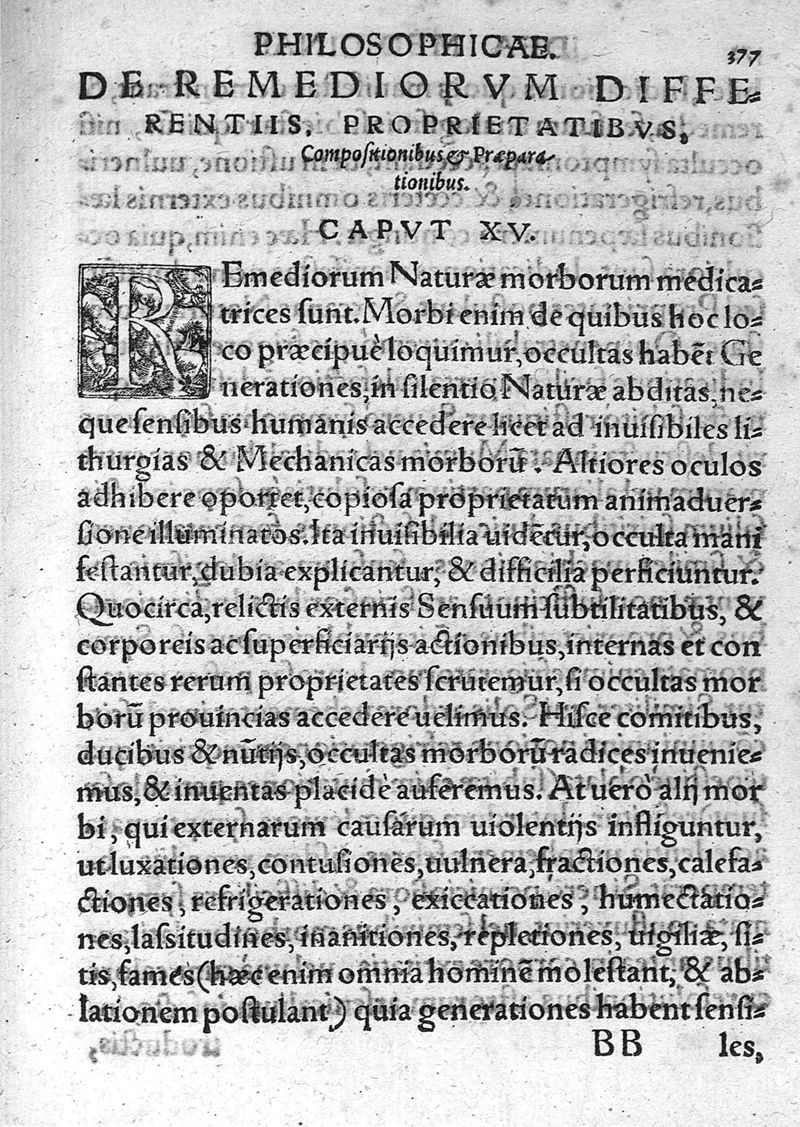 PHILOSOPHICAE. 377
DE REMEDIORVM DIFFE-
RENTIIS, PROPRIETATIBVS,
Compositionibus & Præpara-
tionibus.
CAPVT XV.
REmediorum Naturæ morborum medica-
trices sunt. Morbi enim de quibus hoc lo-
co præcipuè loquimur, occultas habẽt Ge
nerationes, in silentio Naturæ abditas, ne-
que sensibus humanis accedere licet ad inuisibiles li-
thurgias & Mechanicas morborũ. Altiores oculos
adhibere oportet, copiosa proprietatum animaduer-
sione illuminatos. Ita inuisibilia uidẽtur, occulta mani
festantur, dubia explicantur, & difficilia perficiuntur.
Quocirca, relictis externis Sensuum subtilitatibus, &
corporeis ac superficiarijs actionibus, internas et con
stantes rerum proprietates scrutemur, si occultas mor
borũ prouincias accedere uelimus. Hisce comitibus,
ducibus & nũtijs, occultas morborũ radices inuenie-
mus, & inuentas placidè auferemus. At uerò alij mor
bi, qui externarum causarum uiolentijs infliguntur,
ut luxationes, contusiones, uulnera, fractiones, calefa-
ctiones, refrigerationes, exiccationes, humectatio-
nes, lassitudines, inanitiones, repletiones, uigiliæ, si-
tis, fames (hæc enim omnia hominẽ molestant, & ab-
lationem postulant) quia generationes habent sensi-
BB les,